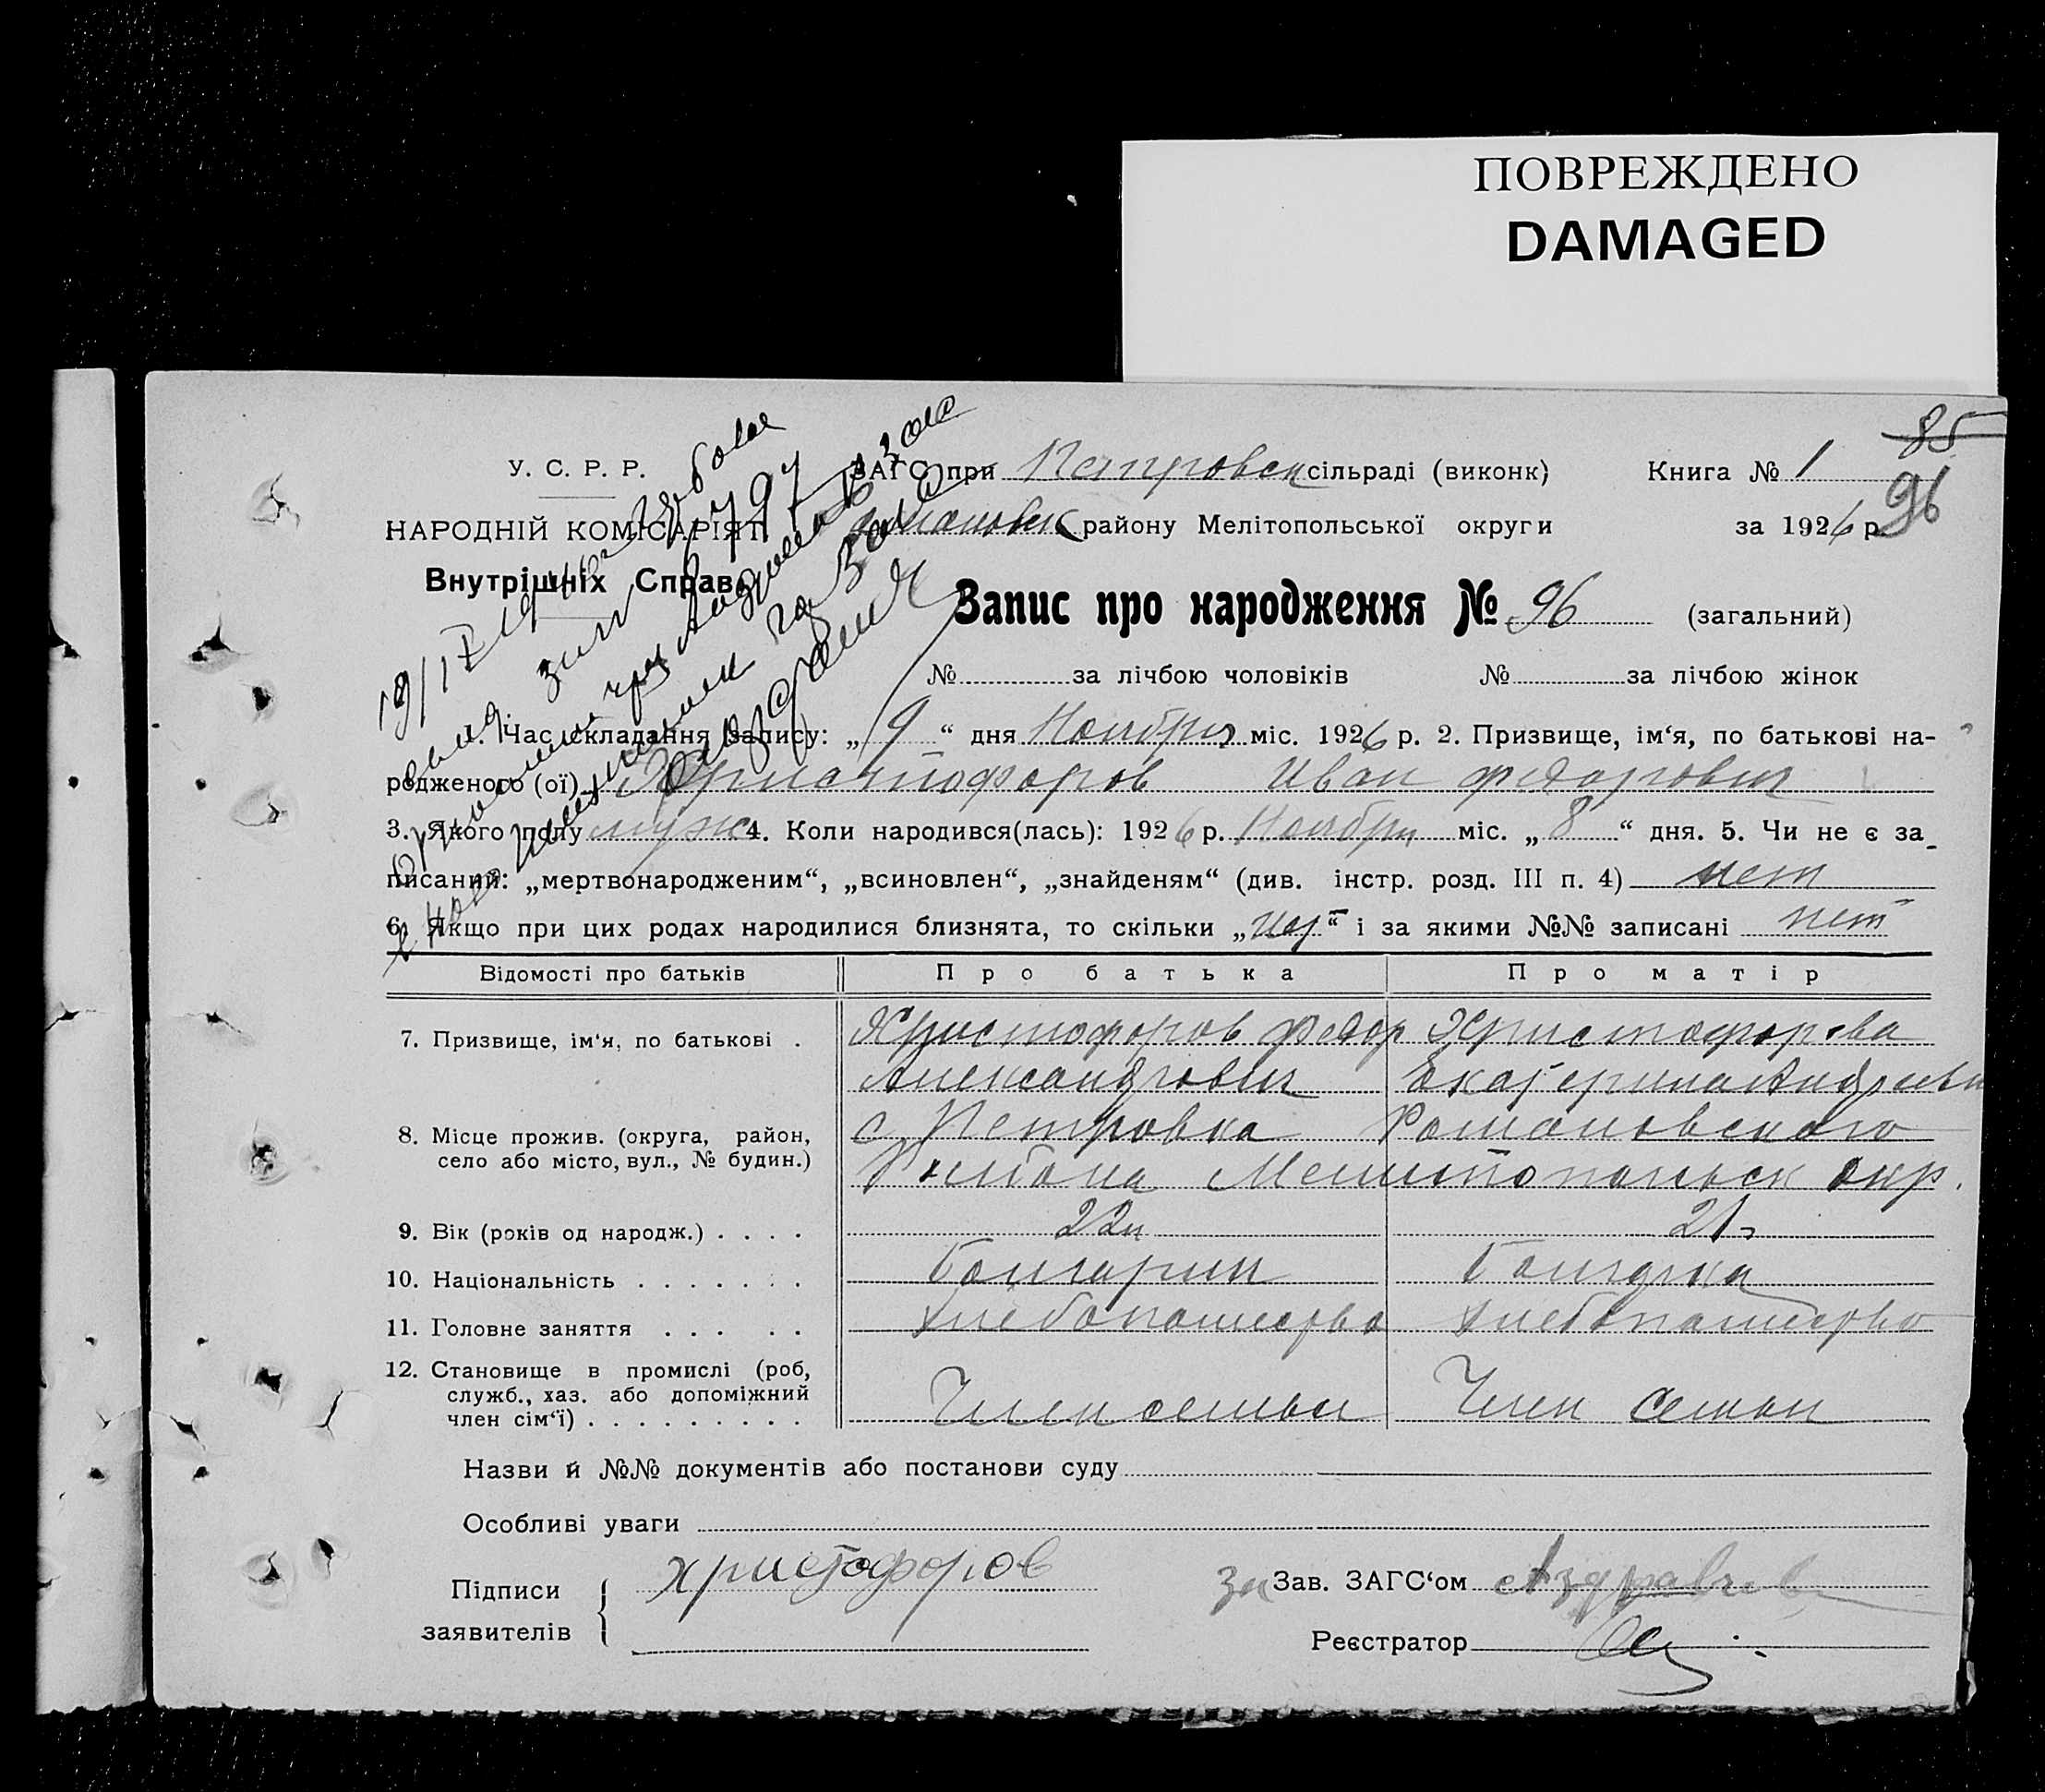 ПОВРЕЖДЕНО
DAMAGED
85
У. С. Р. Р.
ЗАГС при Петровск сільраді (виконк)
Книга № 1
96
НАРОДНІЙ КОМІСАРІЯТ
района Мелітопольської округи
за 1926 р.
Внутрішніх Справ
Запис про народження № 96 (загальний)
№ за лічбою чоловіків № за лічбою жінок
1. Час складання запису: „ 9 “ дня Ноября міс. 1926 р. 2. Призвище, ім‘я, по батькові на-
родженого (ої) Христофоров Иван Федорович
3. Якого полу муж 4. Коли народився(лась): 1926 р. Ноябри міс. „ 8 “ дня. 5. Чи не є за-
писаний: „мертвонародженим“, „всиновлен“, „знайденям“ (див. інстр. розд. III п. 4) нет
6. Якщо при цих родах народилися близнята, то скільки „нет“ і за якими №№ записані нет
Відомості про батьків Про батька Про матір
7. Призвище, ім‘я, по батькові . Христофоров Федор Христофорова
Александрович Екатерина Андреевн
8. Місце прожив. (округа, район, с Петровка Романовского
село або місто, вул., № будин.) Района Мелитопольск окр.
9. Вік (років од народж.) . . . . 22 21
10. Національність . . . . . . . Болгарин Болгарка
11. Головне заняття . . . . . Хлебопашество Хлебопашество
12. Становище в промислі (роб,
служб., хаз. або допоміжний
член сім‘ї) . . . . . . . . . Член семьи Член семьи
Назви й №№ документів або постанови суду
Особливі уваги
Підписи Христофоров
заявителів
За Зав. ЗАГС‘ом
Реєстратор